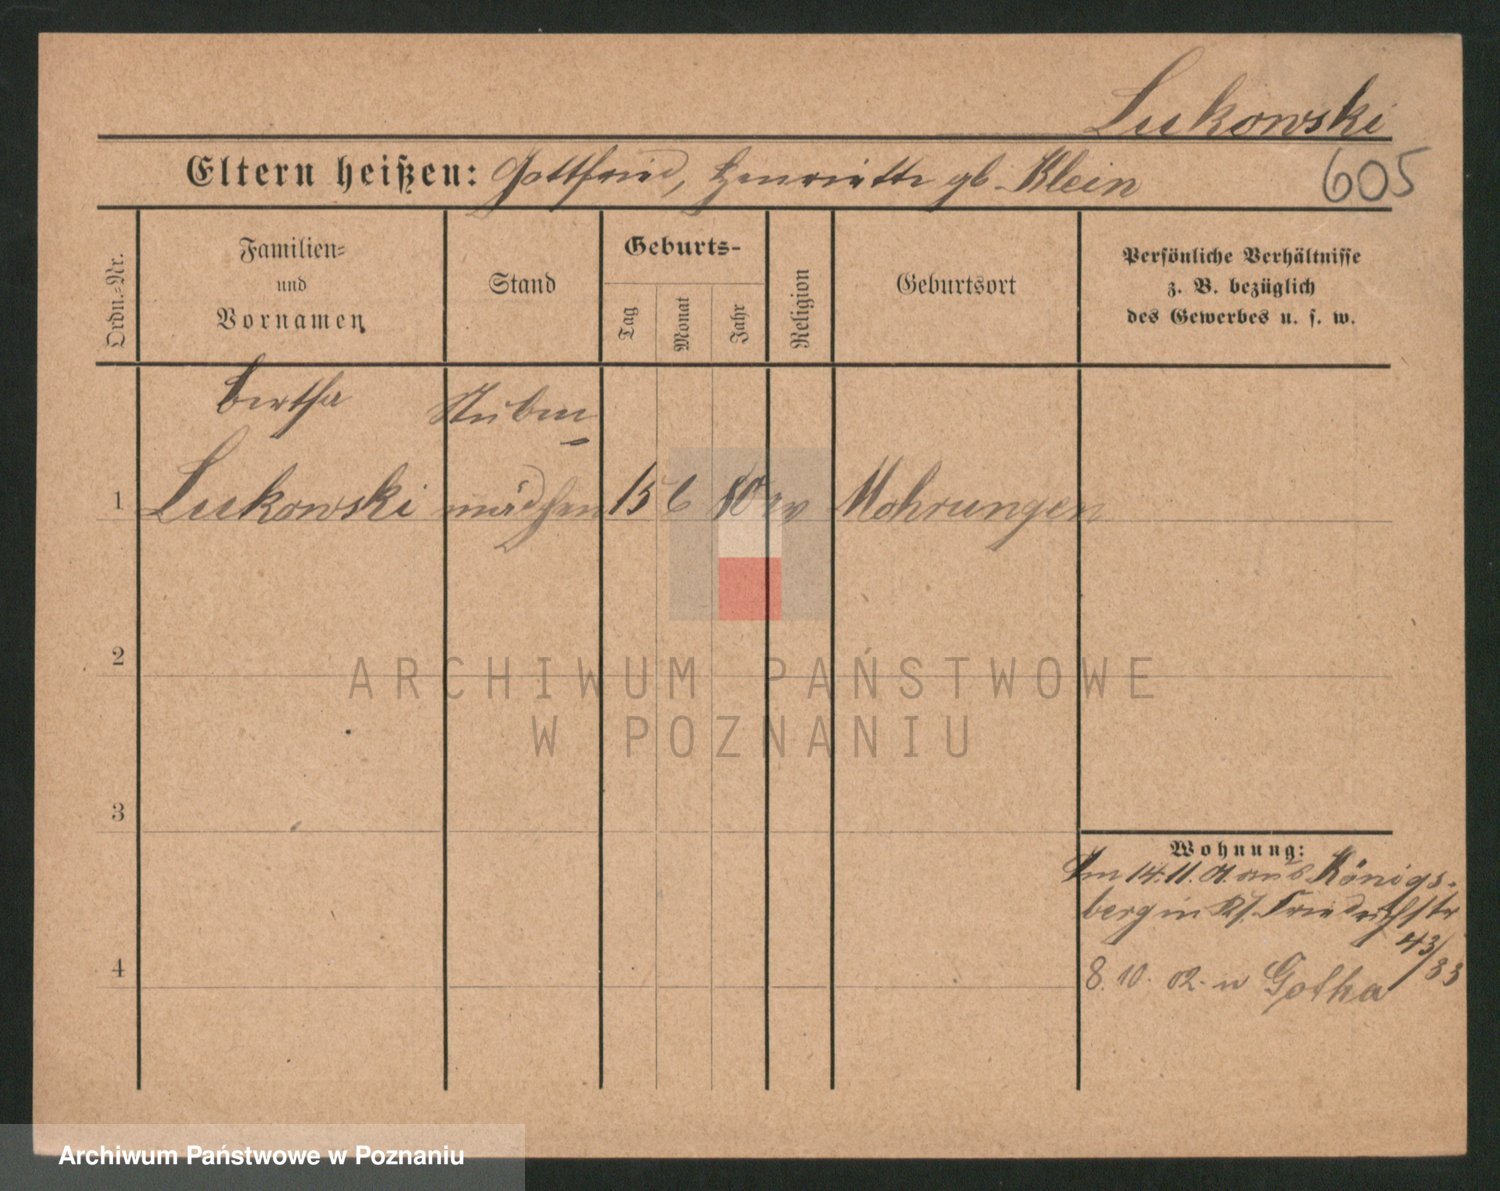 Lukowski
Eltern heißen: Gottfried, Henriette gb. Klein
605
Ordn.-Nr.
Familien-
und
Vornamen
Stand
Geburts-
Tag
Monat
Jahr
Religion
Geburtsort
Persönliche Verhältnisse
z. B. bezüglich
des Gewerbes u. s. w.
Bertha Stuben
1 Lukowski mädchen 15 6 80 ev Mohrungen
2
ARCHIWUM PAŃSTWOWE
W POZNANIU
3
Wohnung:
Am 14.11.01. aus Königs-
berg in Friedrichstr
43/33
4
8. 10. 02. n Gotha
Archiwum Państwowe w Poznaniu